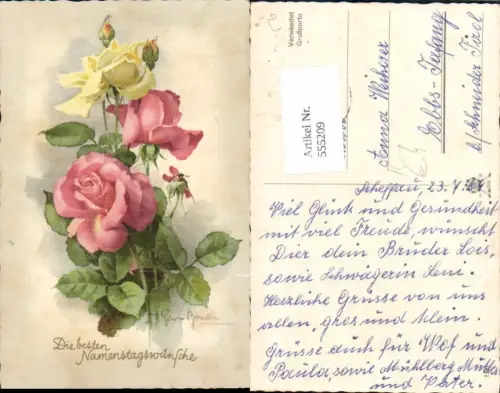 Die besten
Namenstagswünsche
Verwendet
Großporto
Artikel Nr.
555209
Anna
Ebbs-
b/ Schneider Tirol
Scheffau, 23. 7.
Viel Glück und Gesundheit
mit viel Freude, wünscht
Dier dein Bruder Lois,
sowie Schwägerin Leni.
Herzliche Grüsse von uns
allen, gros und klein.
Grüsse auch für Wof und
Paula, sowie Mühlberg Mutter
und Vater.